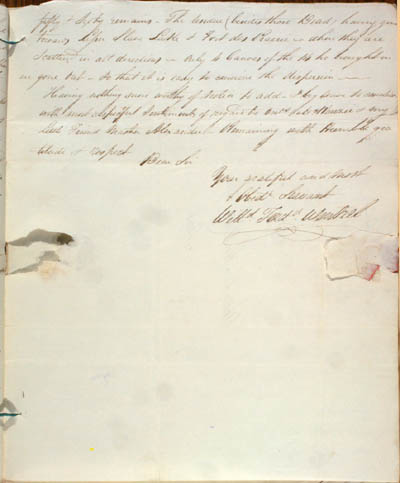 fifty & sixty remains – The residue (besides those Dead) having gone
towards Slave Lake & Fort des – when they are
Scattered in all directions – only 4 Canoes of the 14 he brought in
in gone out – So that it is easy to conceive the
Having nothing more worthy of Notice to add – I beg leave to
with most respectful Sentiments of regard to
little Friend Master Alexander Remaining with humble gra
titude & respect
Dear Sir
Your grateful and most
Obdt Servant
Willd Ferdd Wentzel